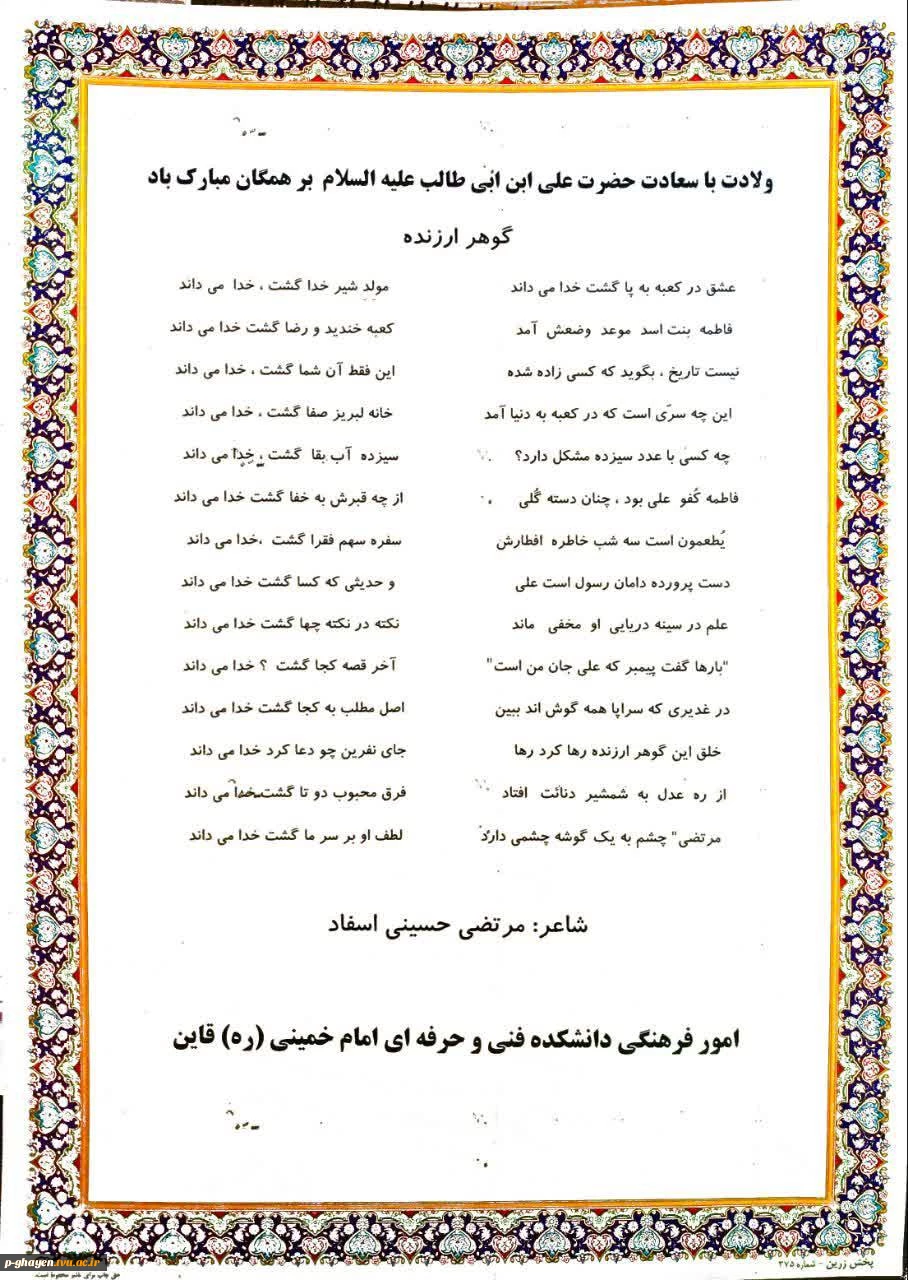 ولادت با سعادت حضرت علی ابن ابی طالب علیه السلام بر همگان مبارک باد
گوهر ارزنده
عشق در کعبه به پا گشت خدا می داند مولد شیر خدا گشت ، خدا می داند
فاطمه بنت اسد موعد وضعش آمد کعبه خندید و رضا گشت خدا می داند
نیست تاریخ ، بگوید که کسی زاده شده این فقط آن شما گشت ، خدا می داند
این چه سرّی است که در کعبه به دنیا آمد خانه لبریز صفا گشت ، خدا می داند
چه کسی با عدد سیزده مشکل دارد؟ سیزده آب بقا گشت ، خدا می داند
فاطمه کُفو علی بود ، چنان دسته گُلی از چه قبرش به خفا گشت خدا می داند
یُطعمون است سه شب خاطره افطارش سفره سهم فقرا گشت ،خدا می داند
دست پرورده دامان رسول است علی و حدیثی که کسا گشت خدا می داند
علم در سینه دریایی او مخفی ماند نکته در نکته چها گشت خدا می داند
"بارها گفت پیمبر که علی جان من است" آخر قصه کجا گشت ؟ خدا می داند
در غدیری که سراپا همه گوش اند ببین اصل مطلب به کجا گشت خدا می داند
خلق این گوهر ارزنده رها کرد رها جای نفرین چو دعا کرد خدا می داند
از ره عدل به شمشیر دنائت افتاد فرق محبوب دو تا گشت خدا می داند
مرتضی" چشم به یک گوشه چشمی دارد لطف او بر سر ما گشت خدا می داند
شاعر: مرتضی حسینی اسفاد
امور فرهنگی دانشکده فنی و حرفه ای امام خمینی (ره) قاین
پخش زرین - شماره ۲۷۵
p-ghayen.tvu.ac.ir
حق چاپ برای ناشر محفوظ است.